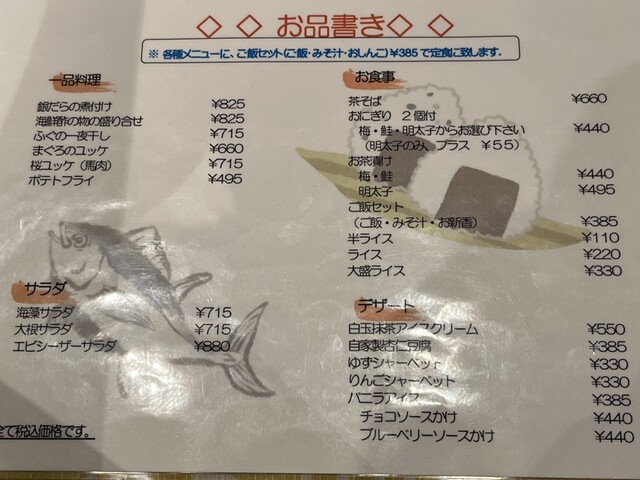 ◇ ◇ お品書き◇ ◇
※ 各種メニューに、ご飯セット(ご飯・みそ汁・おしんこ)¥385で定食に致します.
一品料理
銀だらの煮付け ¥825
海鮮酢の物の盛り合せ ¥825
ふぐの一夜干し ¥715
まぐろのユッケ ¥660
桜ユッケ(馬肉) ¥715
ポテトフライ ¥495
サラダ
海藻サラダ ¥715
大根サラダ ¥715
エビシーザーサラダ ¥880
全て税込価格です。
お食事
茶そば ¥660
おにぎり 2個付
梅・鮭・明太子からお選び下さい ¥440
(明太子のみ、プラス ¥55)
お茶漬け
梅・鮭 ¥440
明太子 ¥495
ご飯セット
(ご飯・みそ汁・お新香) ¥385
半ライス ¥110
ライス ¥220
大盛ライス ¥330
デザート
白玉抹茶アイスクリーム ¥550
自家製杏仁豆腐 ¥385
ゆずシャーベット ¥330
りんごシャーベット ¥330
バニラアイス ¥385
チョコソースかけ ¥440
ブルーベリーソースかけ ¥440